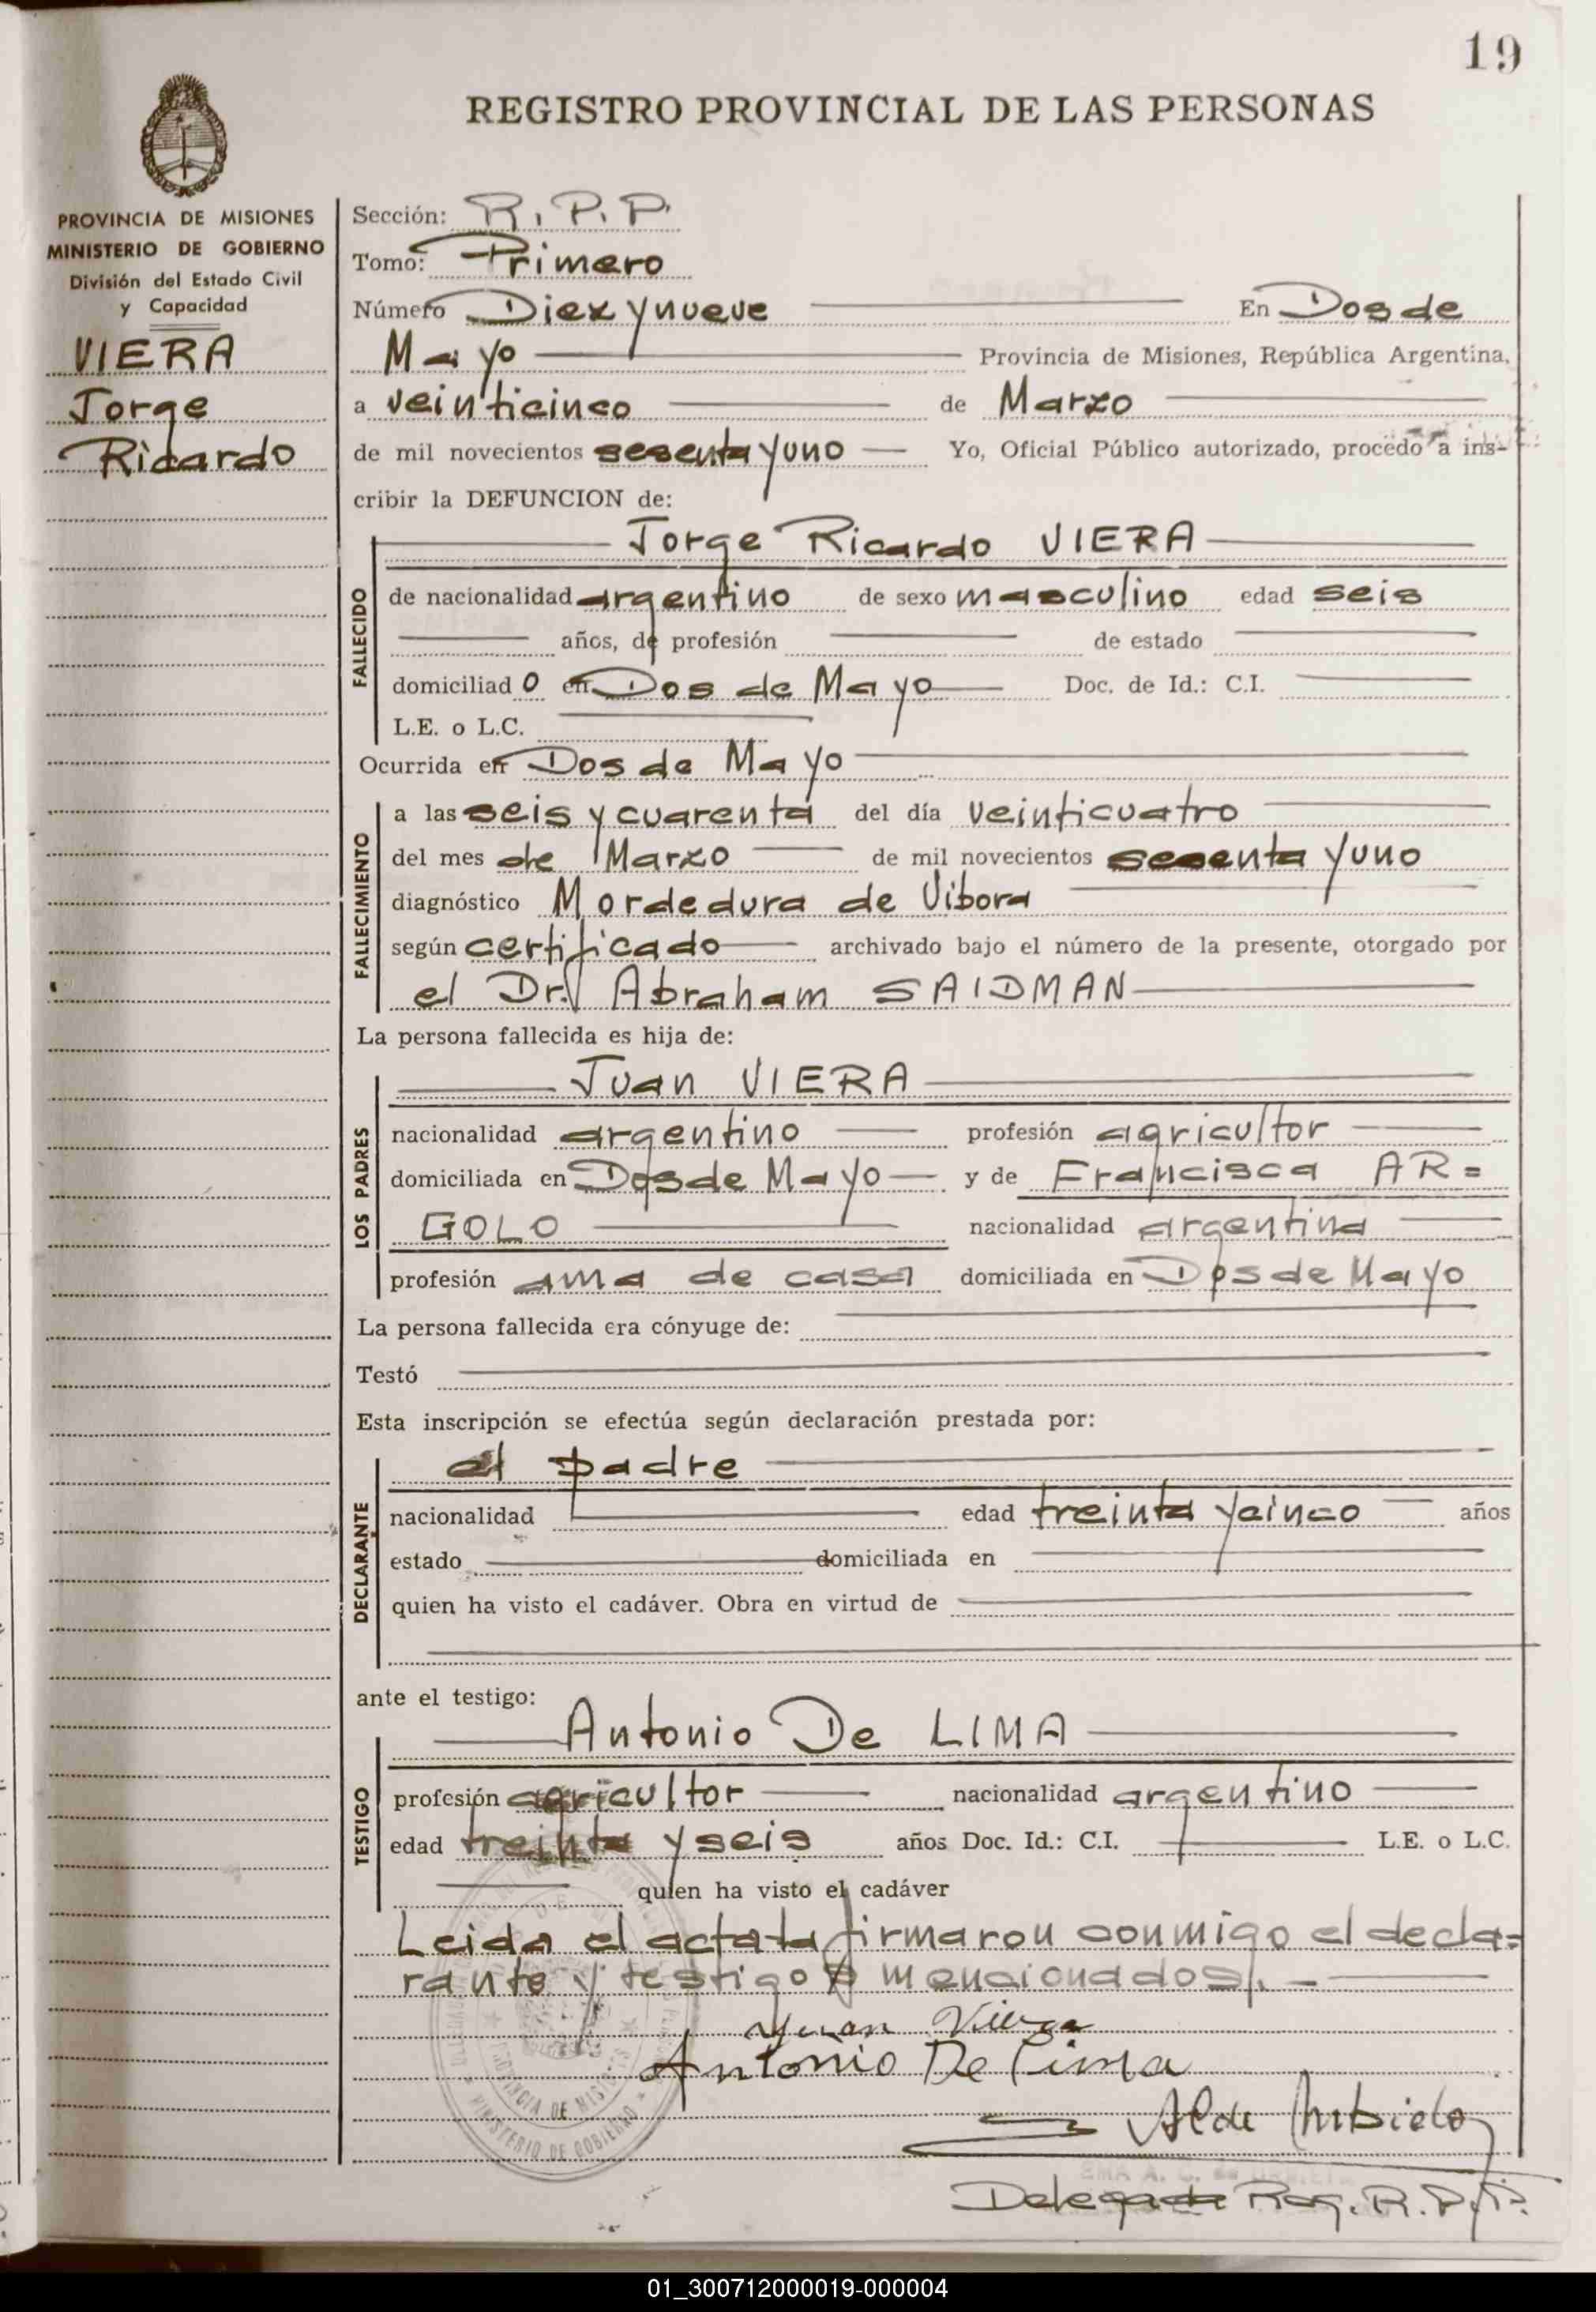 19
REGISTRO PROVINCIAL DE LAS PERSONAS
PROVINCIA DE MISIONES
MINISTERIO DE GOBIERNO
División del Estado Civil
y Capacidad
VIERA
Jorge
Ricardo
Sección: R. P. P.
Tomo: Primero
Número Diez y nueve En Dos de
Mayo Provincia de Misiones, República Argentina,
a veinticinco de Marzo
de mil novecientos sesenta y uno Yo, Oficial Público autorizado, procedo a ins-
cribir la DEFUNCION de:
Jorge Ricardo VIERA
FALLECIDO
de nacionalidad argentino de sexo masculino edad seis
años, de profesión de estado
domiciliado en Dos de Mayo Doc. de Id.: C.I.
L.E. o L.C.
Ocurrida en Dos de Mayo
FALLECIMIENTO
a las seis y cuarenta del día veinticuatro
del mes de Marzo de mil novecientos sesenta y uno
diagnóstico Mordedura de Vibora
según certificado archivado bajo el número de la presente, otorgado por
el Dr. Abraham SAIDMAN
La persona fallecida es hija de:
LOS PADRES
Juan VIERA
nacionalidad argentino profesión agricultor
domiciliada en Dos de Mayo y de Francisca AR=
GOLO nacionalidad argentina
profesión ama de casa domiciliada en Dos de Mayo
La persona fallecida era cónyuge de:
Testó
Esta inscripción se efectúa según declaración prestada por:
DECLARANTE
el padre
nacionalidad edad treinta y cinco años
estado domiciliada en
quien ha visto el cadáver. Obra en virtud de
ante el testigo:
TESTIGO
Antonio De LIMA
profesión agricultor nacionalidad argentino
edad treinta y seis años Doc. Id.: C.I. L.E. o L.C.
quien ha visto el cadáver
Leida el acta la firmaron conmigo el decla=
rante y testigos mencionados.
Juan Viera
Antonio De Lima
PROVINCIA DE MISIONES
MINISTERIO DE GOBIERNO
Delegada Reg. R. P. P.
01_300712000019-000004